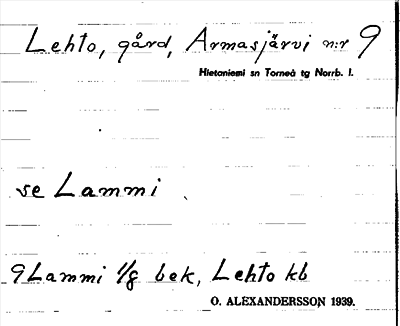 Lehto, gård, Armasjärvi n:r 9
Hietaniemi sn Torneå tg Norrb. l.
se Lammi
9 Lammi 1/8 bek, Lehto kb
O. ALEXANDERSSON 1939.